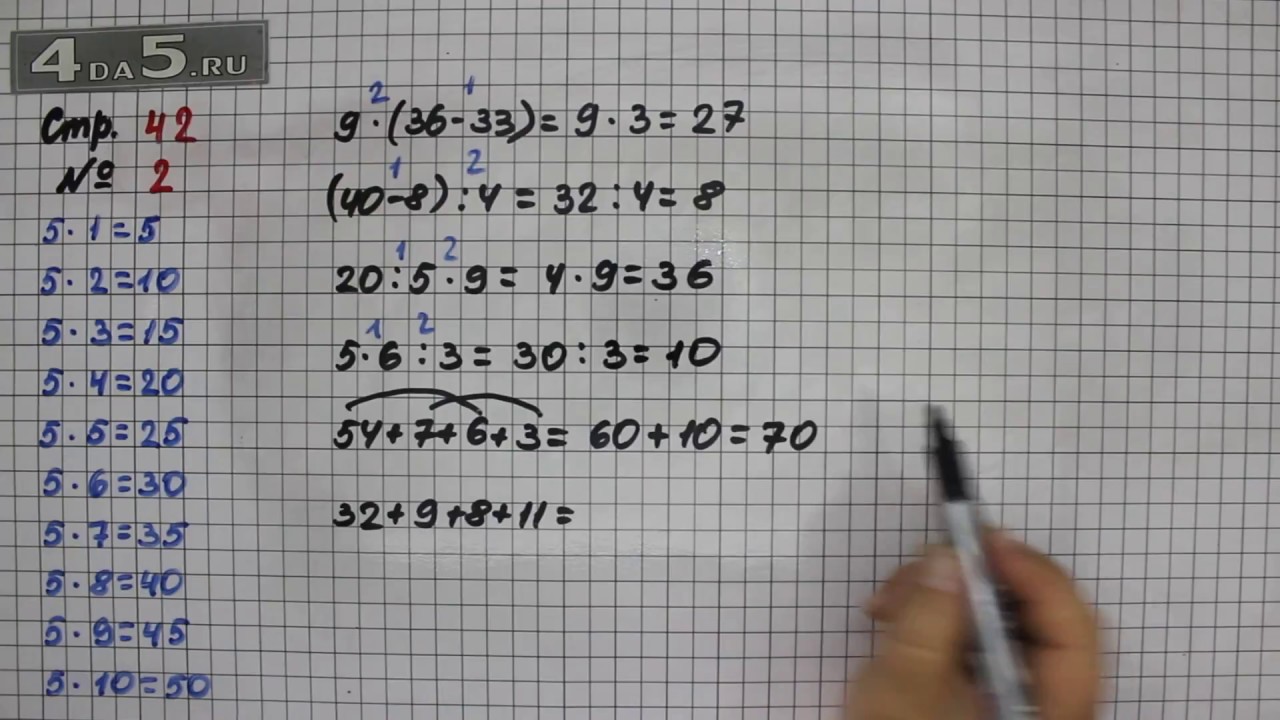 4DA5.RU
Стр. 42
№ 2
5·1=5
5·2=10
5·3=15
5·4=20
5·5=25
5·6=30
5·7=35
5·8=40
5·9=45
5·10=50
2 1
9·(36-33)=9·3=27
1 2
(40-8):4=32:4=8
1 2
20:5·9=4·9=36
1 2
5·6:3=30:3=10
54+7+6+3=60+10=70
32+9+8+11=